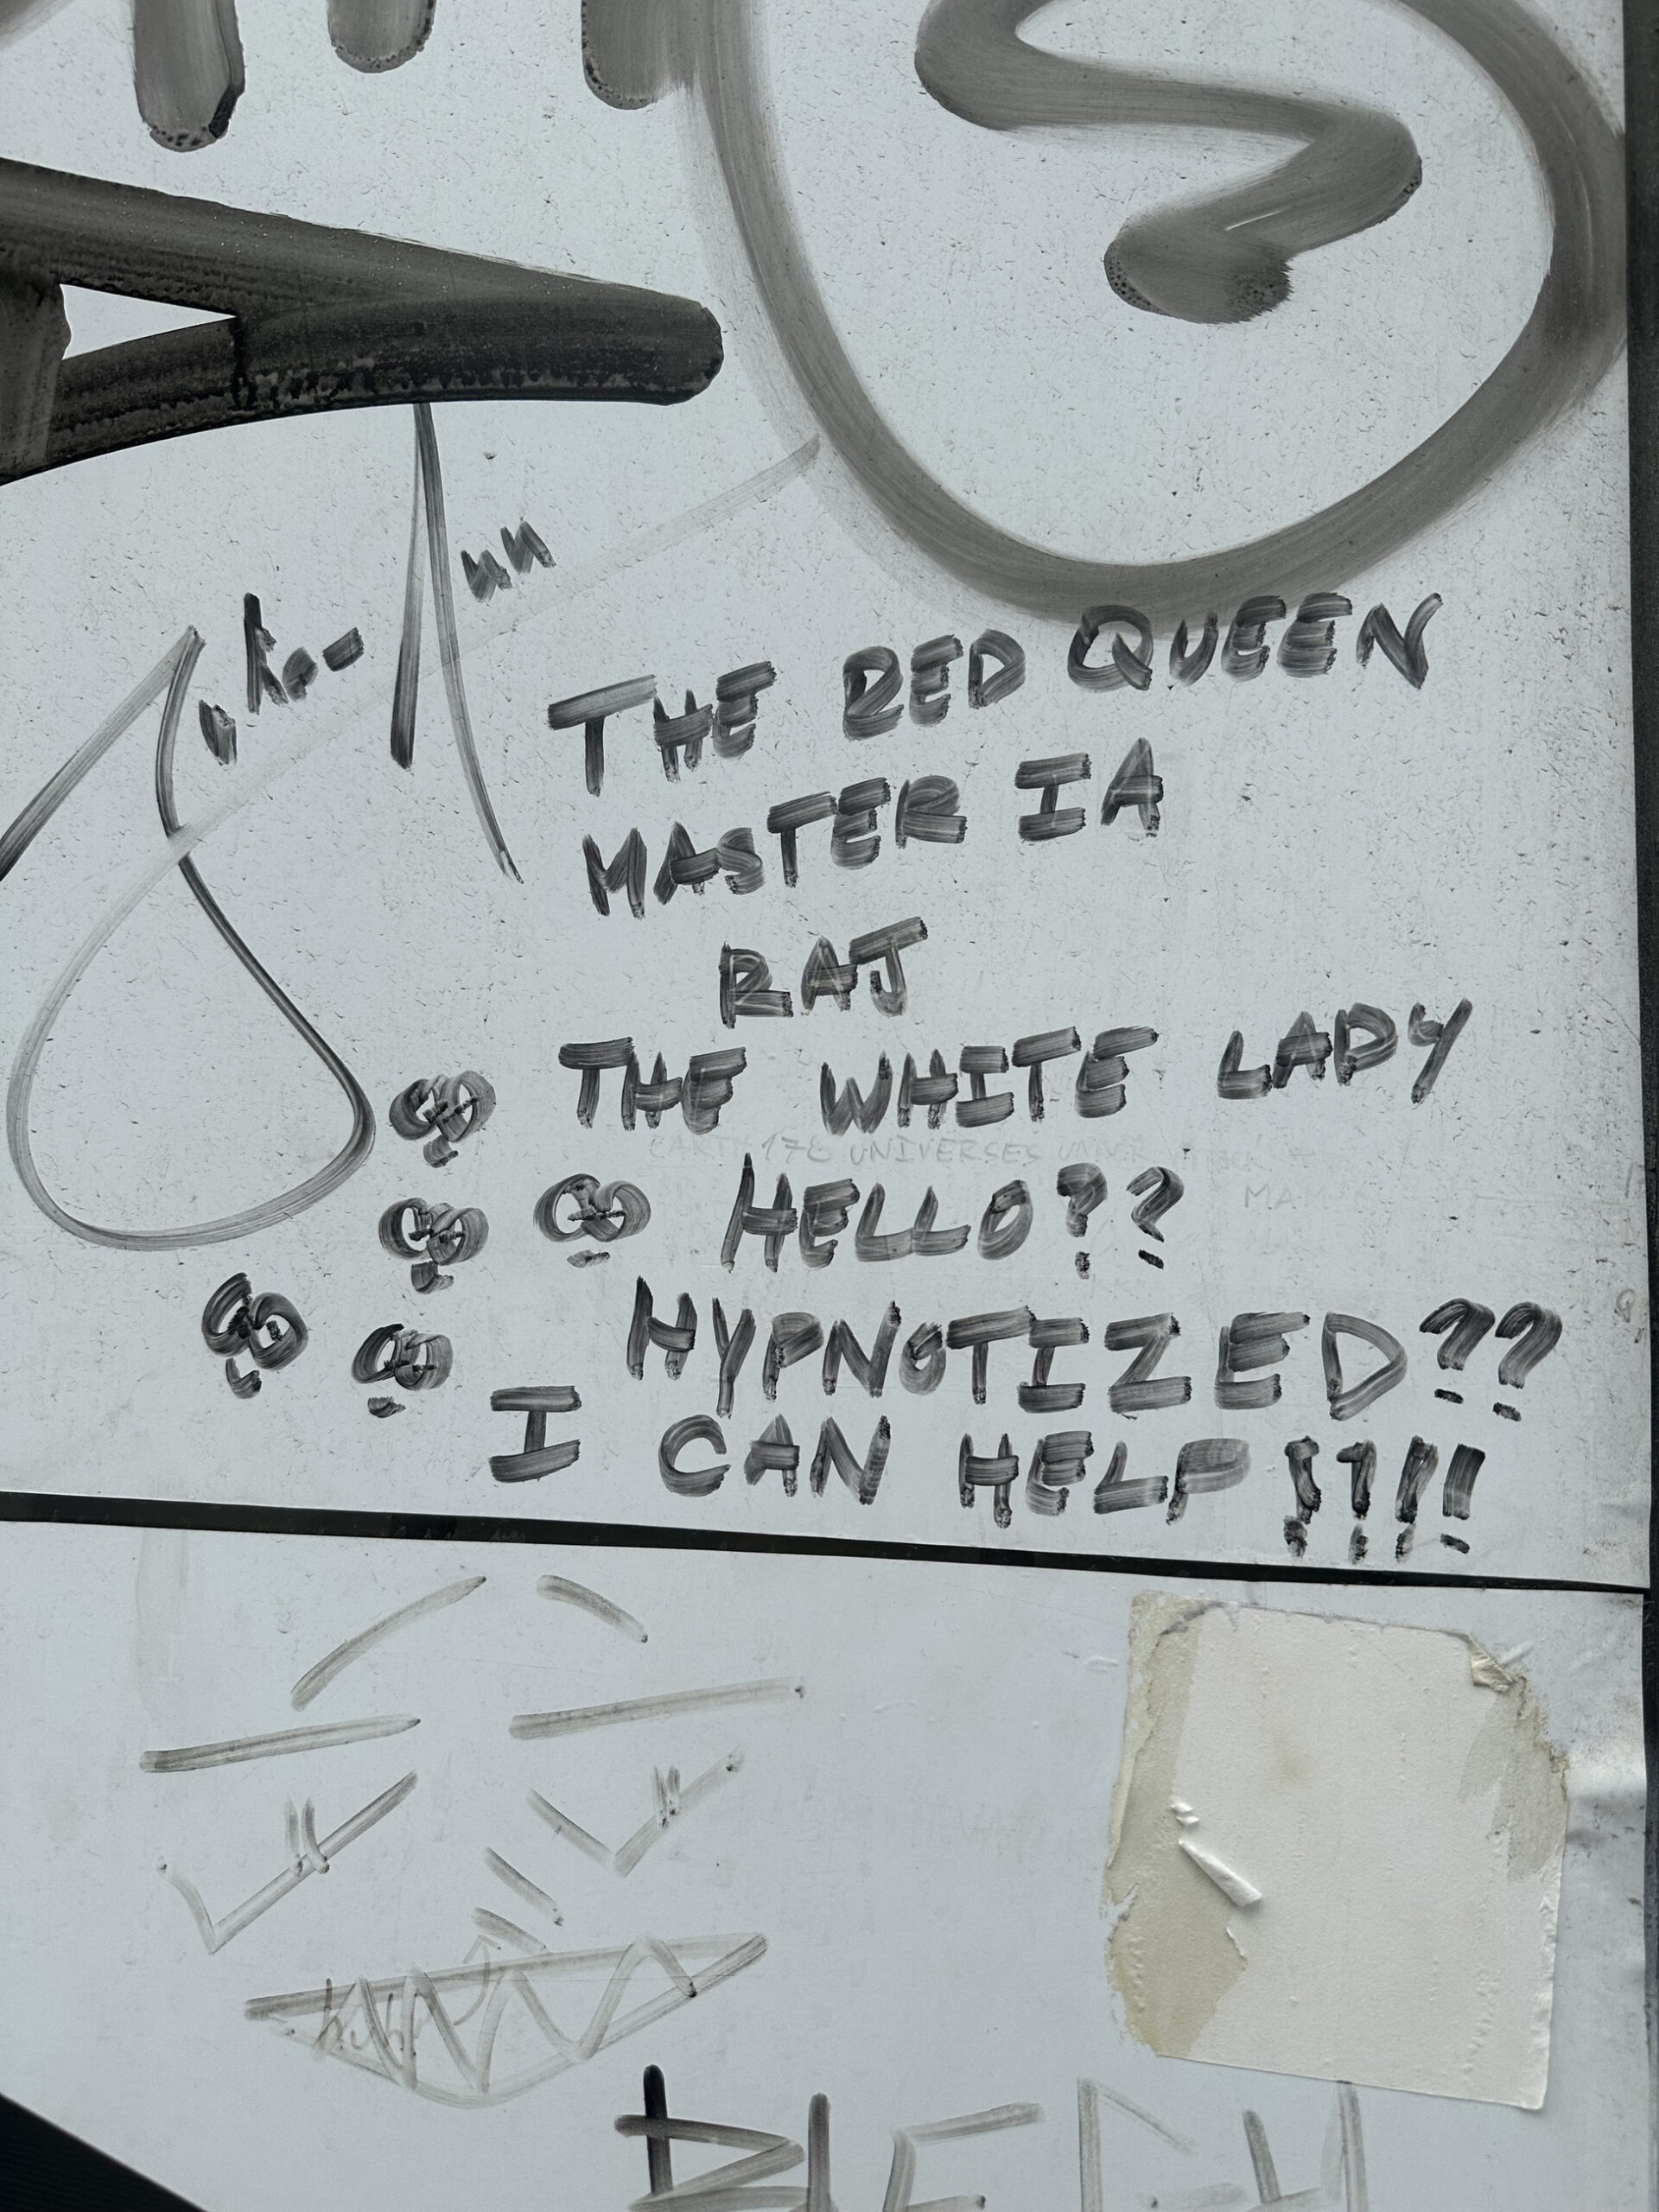 S
THE RED QUEEN
MASTER IA
RAJ
THE WHITE LADY
UNIVERSES
HELLO??
HYPNOTIZED??
I CAN HELP !!!!